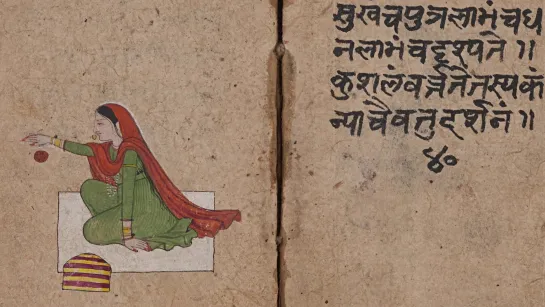 सुखंचपुत्रलाभंचध
नलाभंचदृश्यते॥
कुशलंवर्त्ततेतस्यकं
न्याचैवतुदर्शनं॥
४०